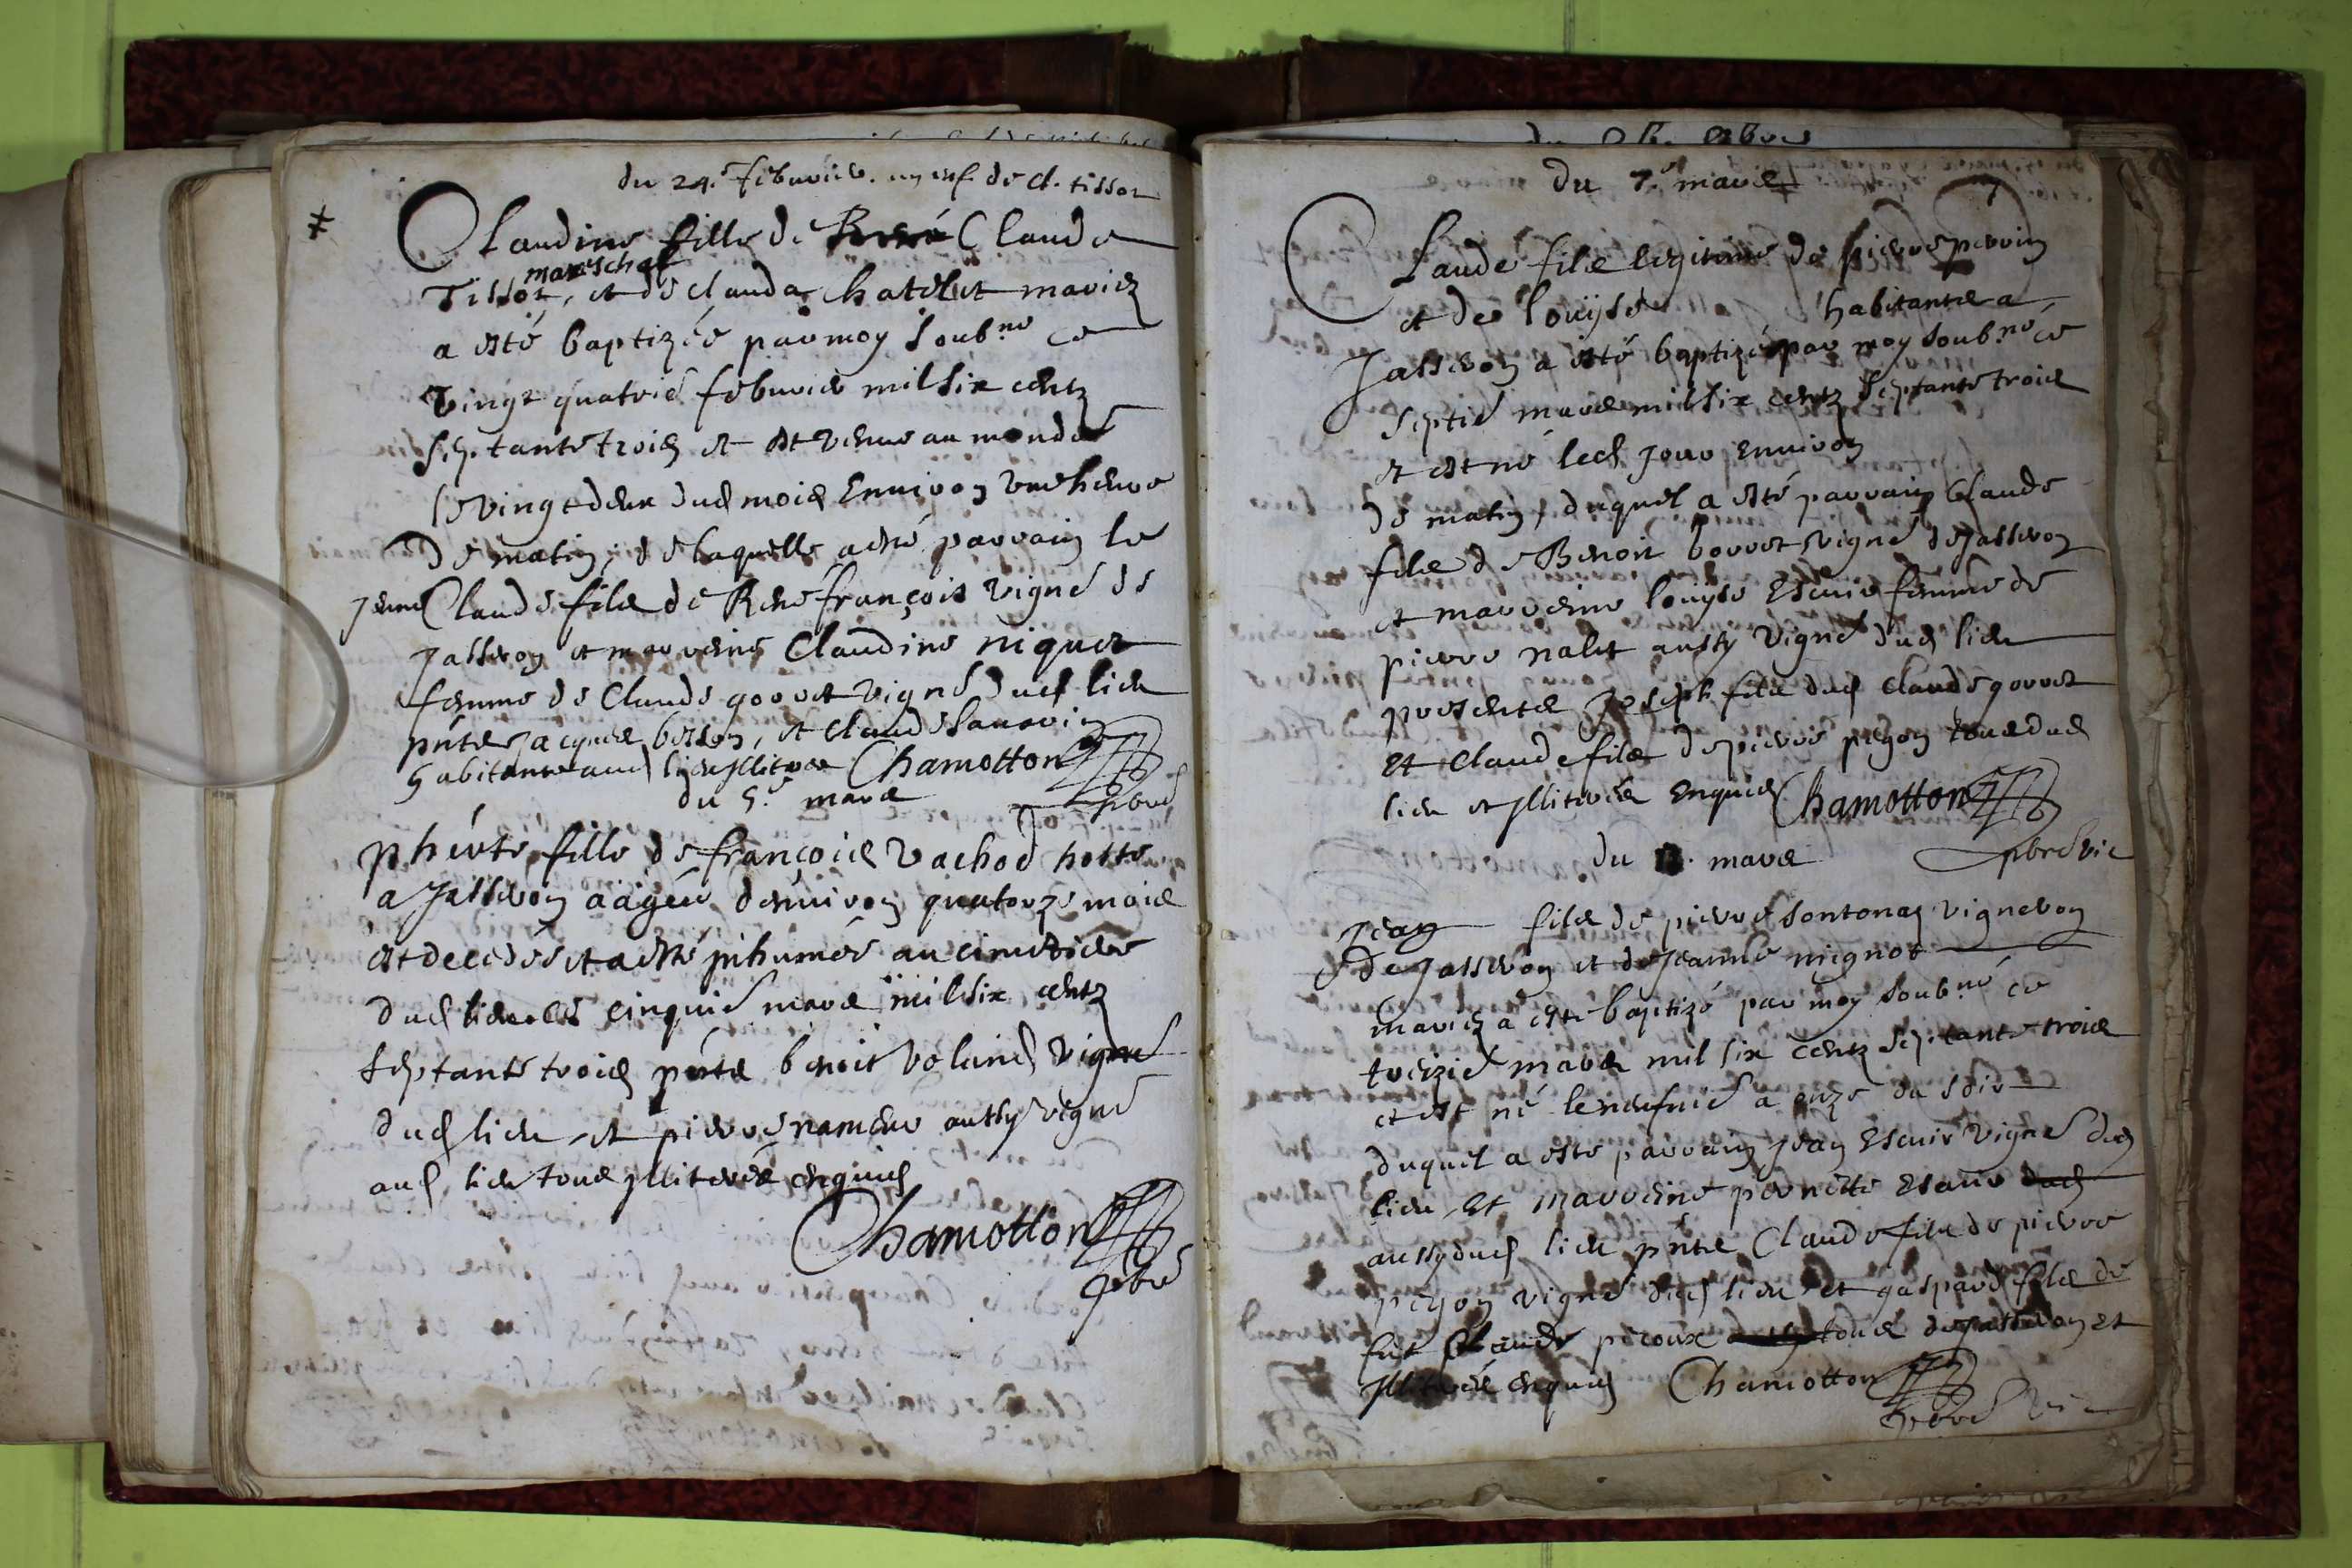 du 24.e febuvier. un enf. de cl. tissot
Claudine fille de René Claude
mareschal
Tissot, et de clauda Chatelet mariez
a esté baptizée par moy soub.né ce
vingt quatrie febuvier mil six centz
septante trois et est venue au monde
le vingt deux dud mois environ une heure
de matin, de laquelle a esté parrain le
jeune Claude filz de René françois vigne de
Jasseron et marreine Claudine niquet
femme de Claude gorret vigne dud lieu
pntes jacques besson, et Claude
habitantz aud lieu illitres Chamotton
pbre
du 5.e mars
pheirte fille de françois Vachod hoste
a Jasseron aagée denviron quatorze mois
est decedée et a esté inhumée au cimetiere
dud lieu ce cinquie mars mil six centz
septante trois pnte benoit Voland vigne
dud lieu et pierre rameur aussy vigne
aud lieu tous illiterés enquis
Chamotton
pbre
du 7.e mars
Claude filz legitime de pierre perrin
et de louyse habitantz a
Jasseron a esté baptizé par moy soub.né ce
septie mars mil six centz septante trois
et est né led jour environ
de matin, duquel a esté parrain Claude
filz de Benoit borret vigne de Jasseron
et marreine louyse Escuie femme de
pierre nalet aussy vigne dud lieu
presentz Joseph filz dud Claude gorret
et Claude filz de pierre pigon tous dud
lieu et illiterés enquis Chamotton
pbre vic
du 13. mars
Jean filz de pierre sontonas vigneron
de Jasseron et de Jeanne mignot
mariez a esté baptizé par moy soub.né ce
treizie mars mil six centz septante trois
et est né le neufvie a onze du soir
duquel a esté parrain Jean Escuir vigne dud
lieu et marreine pernette Escuir dud
aussy dud lieu pnte Claude filz de pierre
pigon vigne dud lieu et gaspard filz de
fut Claude peroux tous de Jasseron et
illiterés enquis Chamotton
pbre vic